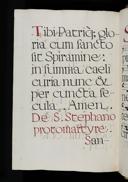 Tibi Patriq; glo
ria cum sancto
sit Spiramine:
in summa caeli
curia nunc &
per cuncta se
cula. Amen.
De S. Stephano
protomartyre.
San-